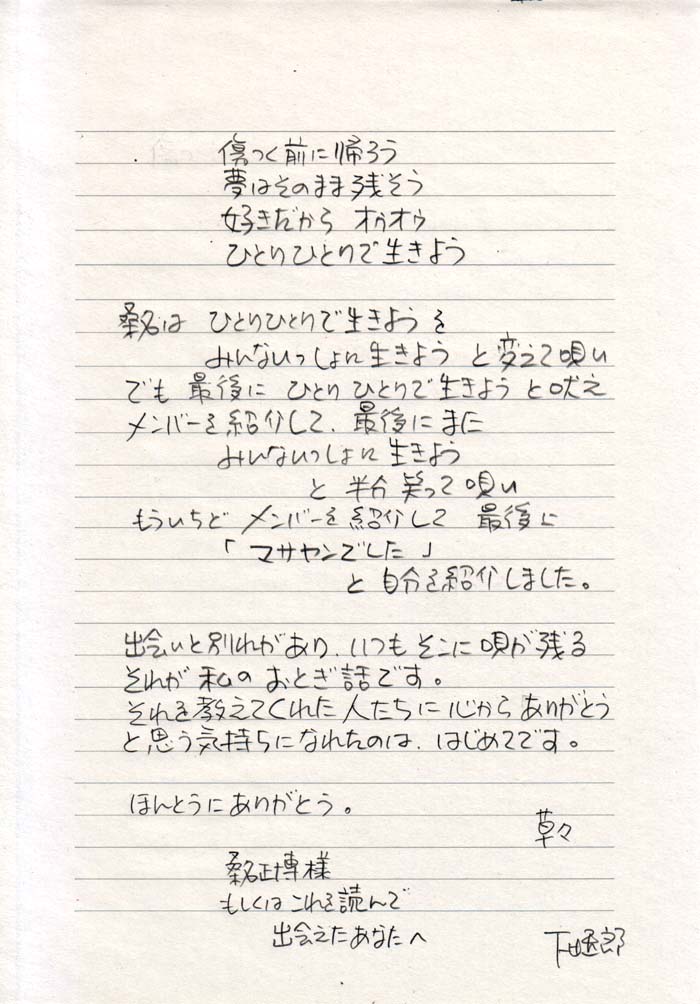 傷つく前に帰ろう
夢はそのまま残そう
好きだから オゥオゥ
ひとりひとりで生きよう
桑名は ひとりひとりで生きようを
みんないっしょに生きよう と変えて唄い
でも 最後に ひとりひとりで生きよう と吠え
メンバーを紹介して、最後にまた
みんないっしょに生きよう
と 半分 笑って唄い
もういちど メンバーを紹介して 最後に
「マサヤンでした」
と自分を紹介しました。
出会いと別れがあり、いつもそこに唄が残る
それが私のおとぎ話です。
それを教えてくれた人たちに心からありがとう
と思う気持ちになれたのは、はじめてです。
ほんとうにありがとう。
草々
桑名正博様
もしくはこれを読んで
出会えたあなたへ
下田逸郎